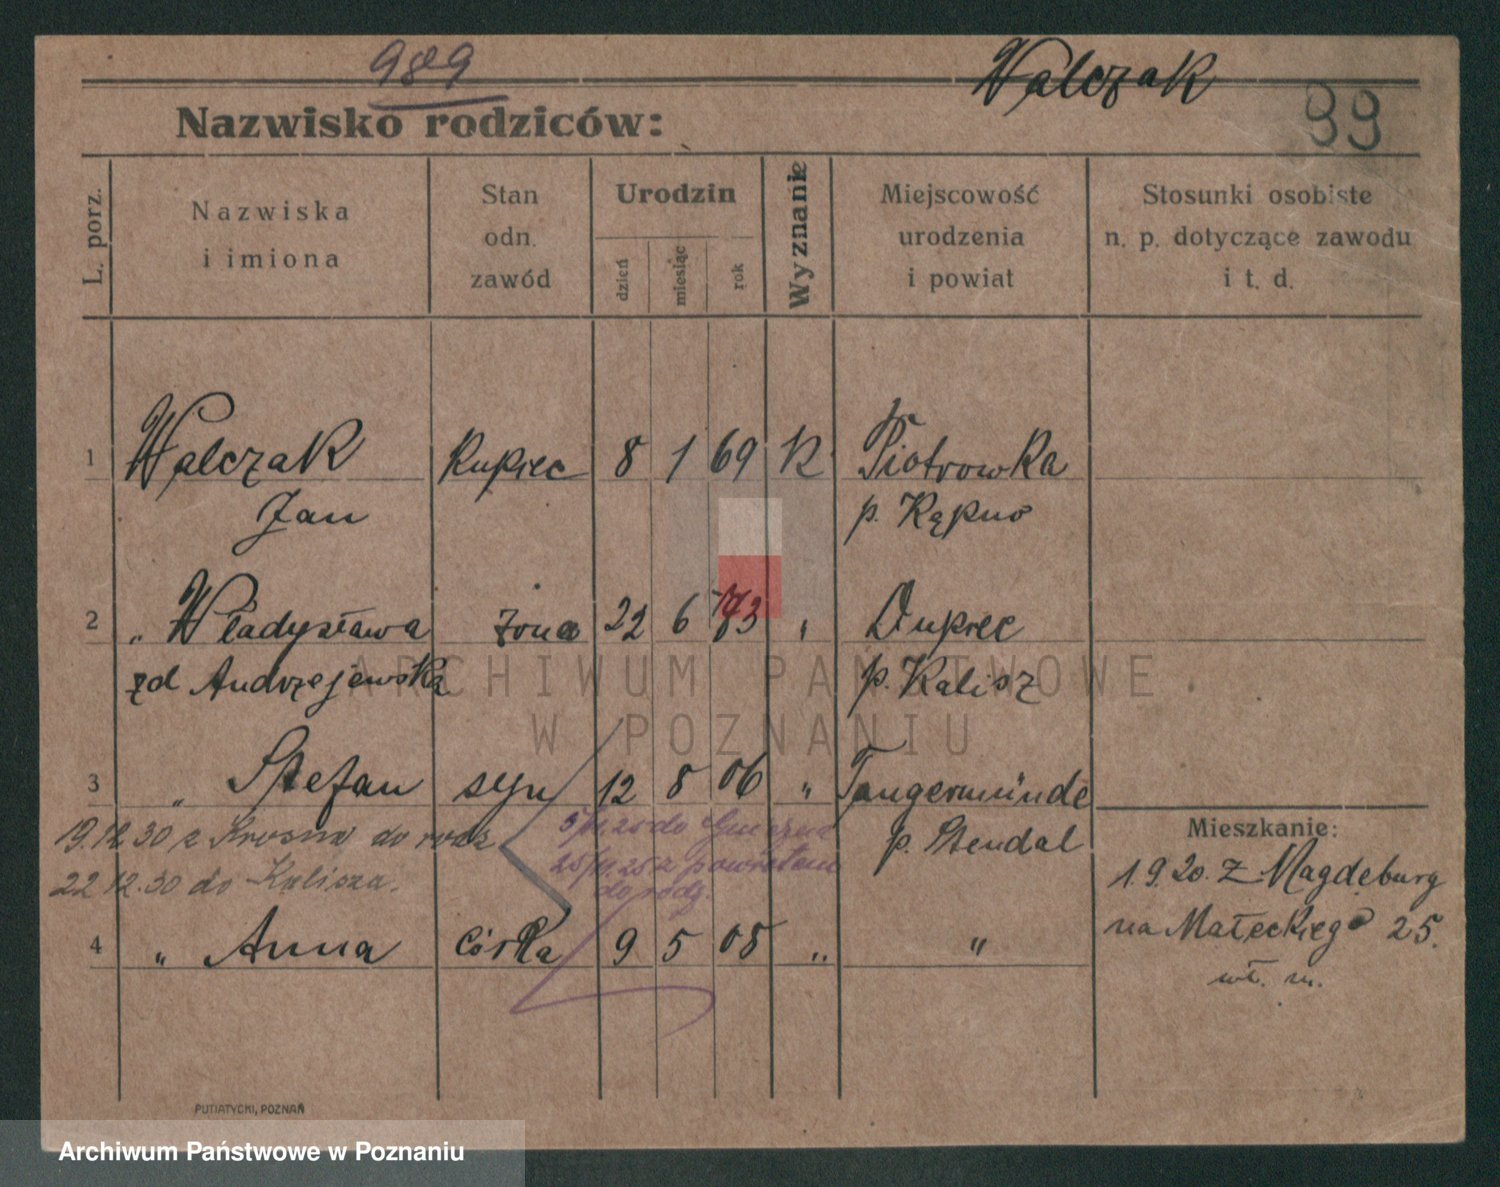 989
Walczak
99
Nazwisko rodziców:
L. porz.
Nazwiska
i imiona
Stan
odn.
zawód
Urodzin
dzień
miesiąc
rok
Wyznanie
Miejscowość
urodzenia
i powiat
Stosunki osobiste
n. p. dotyczące zawodu
i t. d.
1 Walczak kupiec 8 1 69 K Piotrowka
Jan p. Kępno
2 " Władysława żona 22 6 73 " Dupiec
zd Andrzejewska p. Kalisz
ARCHIWUM PAŃSTWOWE
W POZNANIU
3 " Stefan syn 12 8 06 " Tangermünde
p. Stendal
19.12.30 z Krosna do rodz
22 12.30 do Kalisza.
5/11.25 do Gniezna
25/11.25 z powrotem
do rodz.
4 " Anna córka 9 5 08 " "
Mieszkanie:
1.9.20. z Magdeburg
na Małeckiego 25.
wł. m.
PUTIATYCKI, POZNAŃ
Archiwum Państwowe w Poznaniu